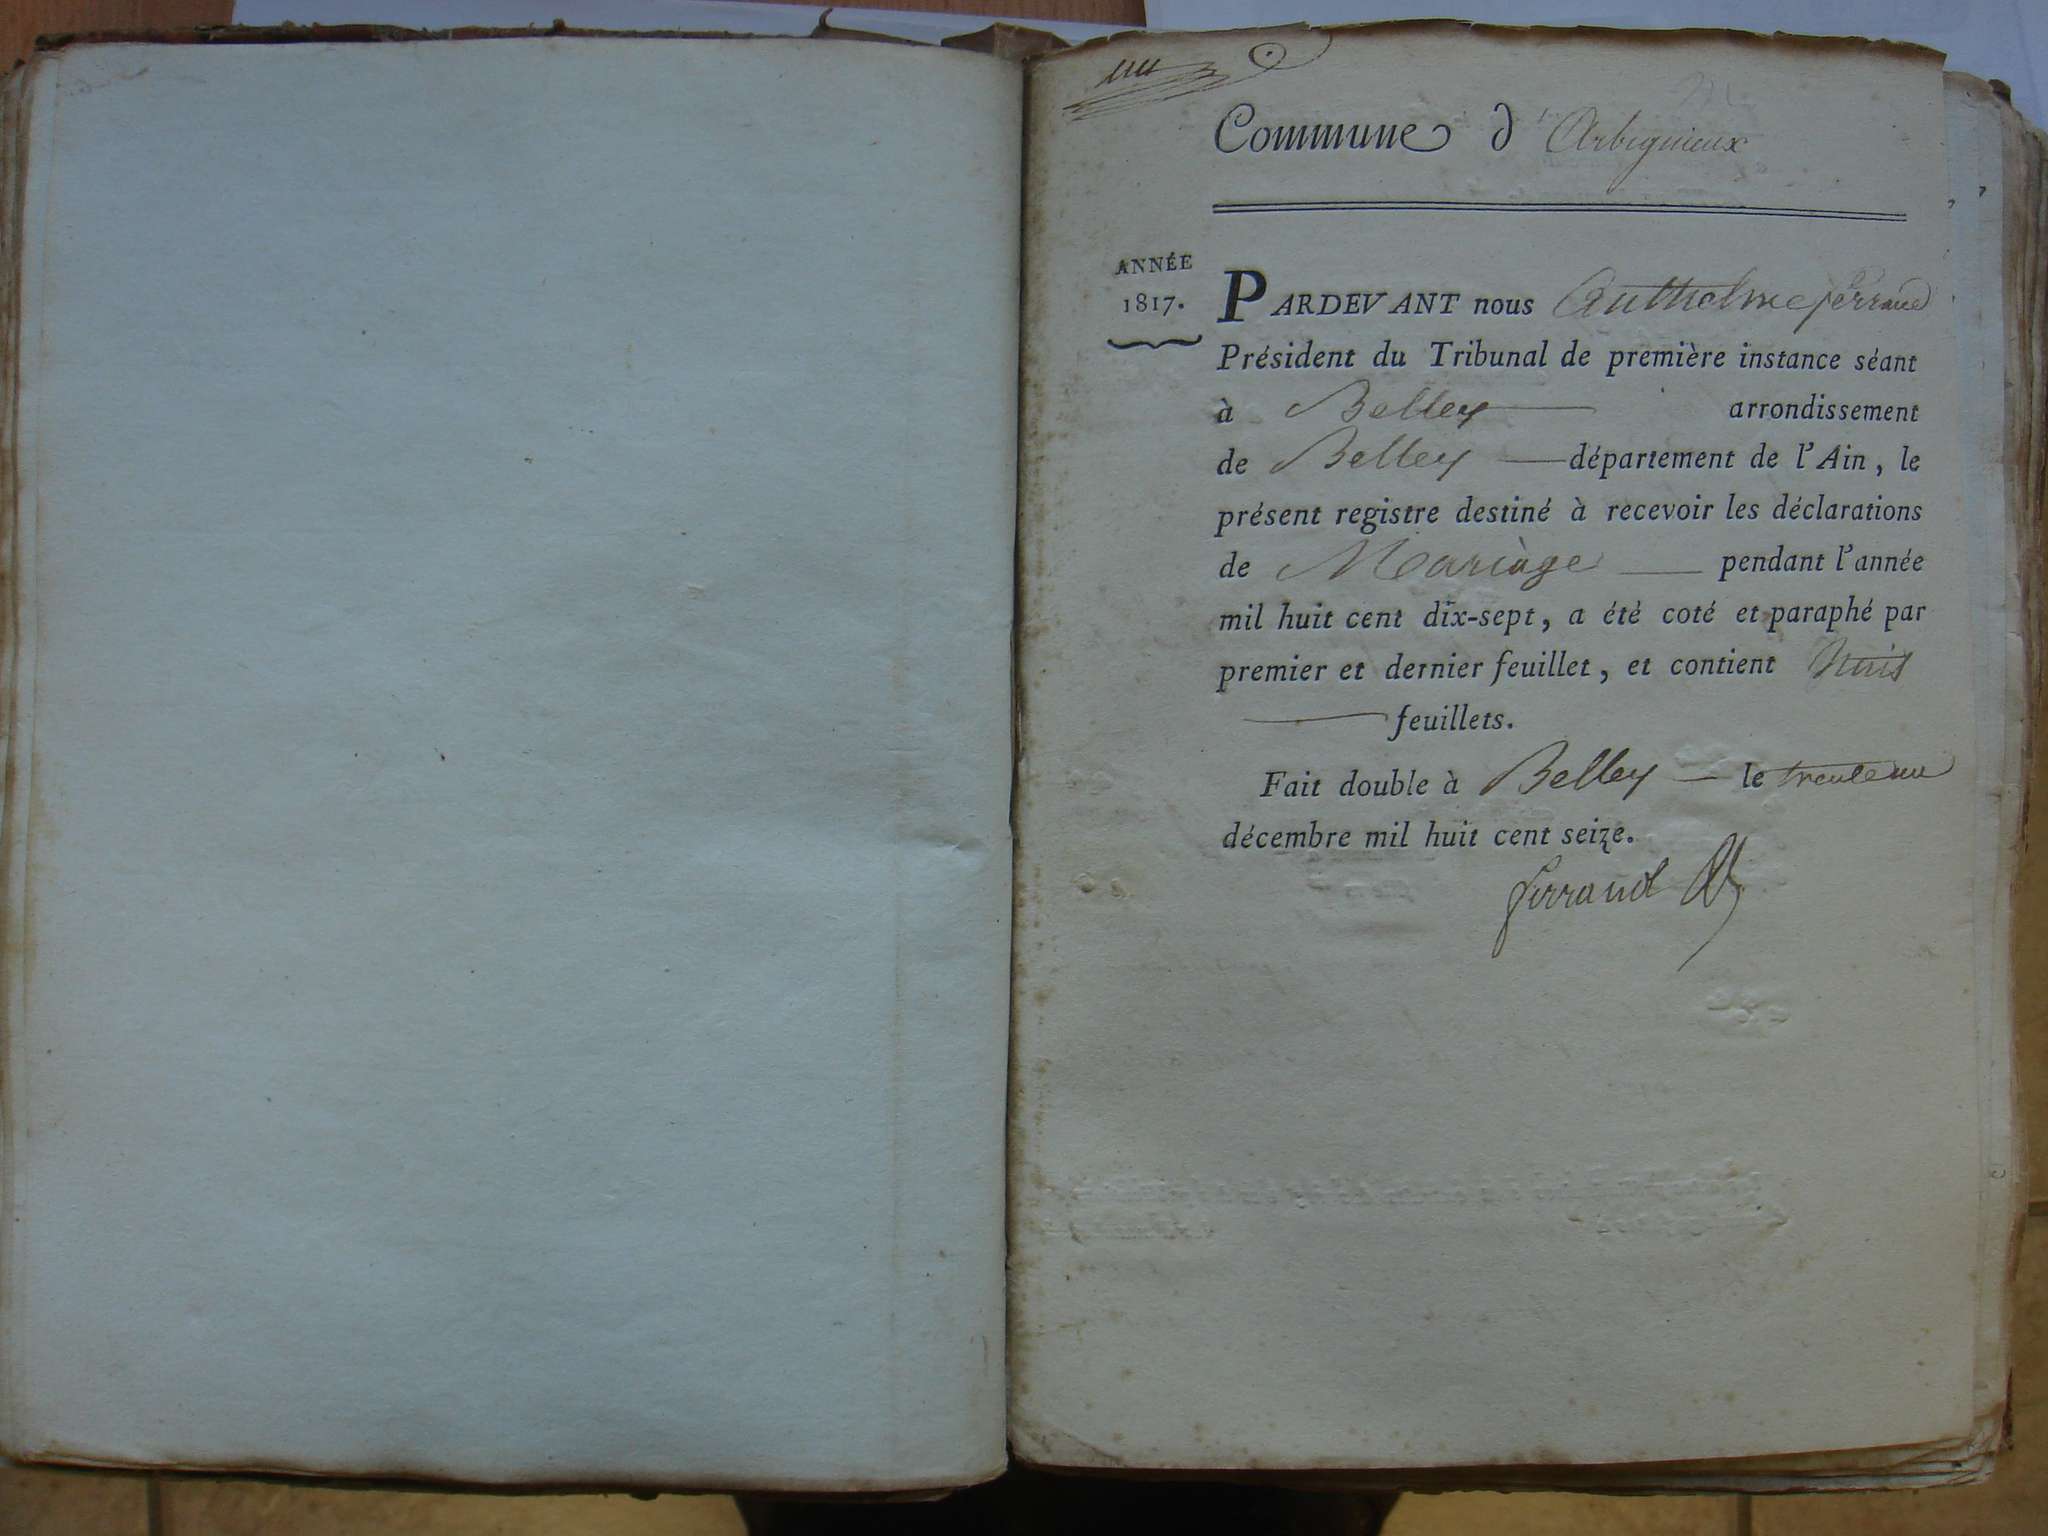 un
Commune d'Arbignieux
ANNÉE
1817.
PARDEVANT nous Anthelme ferrand
Président du Tribunal de première instance séant
à Belley arrondissement
de Belley département de l'Ain, le
présent registre destiné à recevoir les déclarations
de Mariàge pendant l'année
mil huit cent dix-sept, a été coté et paraphé par
premier et dernier feuillet, et contient
feuillets.
Fait double à Belley le trente un
décembre mil huit cent seize.
ferrand